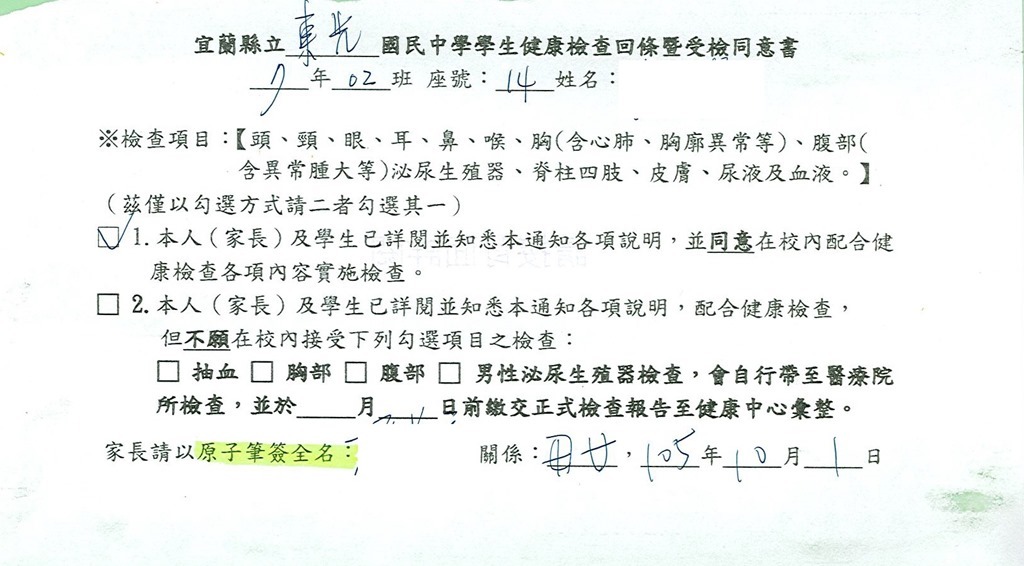 宜蘭縣立東光國民中學學生健康檢查回條暨受檢同意書
7年02班 座號：14 姓名：
※檢查項目：【頭、頸、眼、耳、鼻、喉、胸(含心肺、胸廓異常等)、腹部(
含異常腫大等)泌尿生殖器、脊柱四肢、皮膚、尿液及血液。】
（茲僅以勾選方式請二者勾選其一）
☑ 1. 本人（家長）及學生已詳閱並知悉本通知各項說明，並同意在校內配合健
康檢查各項內容實施檢查。
□ 2. 本人（家長）及學生已詳閱並知悉本通知各項說明，配合健康檢查，
但不願在校內接受下列勾選項目之檢查：
□ 抽血 □ 胸部 □ 腹部 □ 男性泌尿生殖器檢查，會自行帶至醫療院
所檢查，並於＿＿＿月＿＿＿日前繳交正式檢查報告至健康中心彙整。
家長請以原子筆簽全名： 關係：母女，105年10月1日